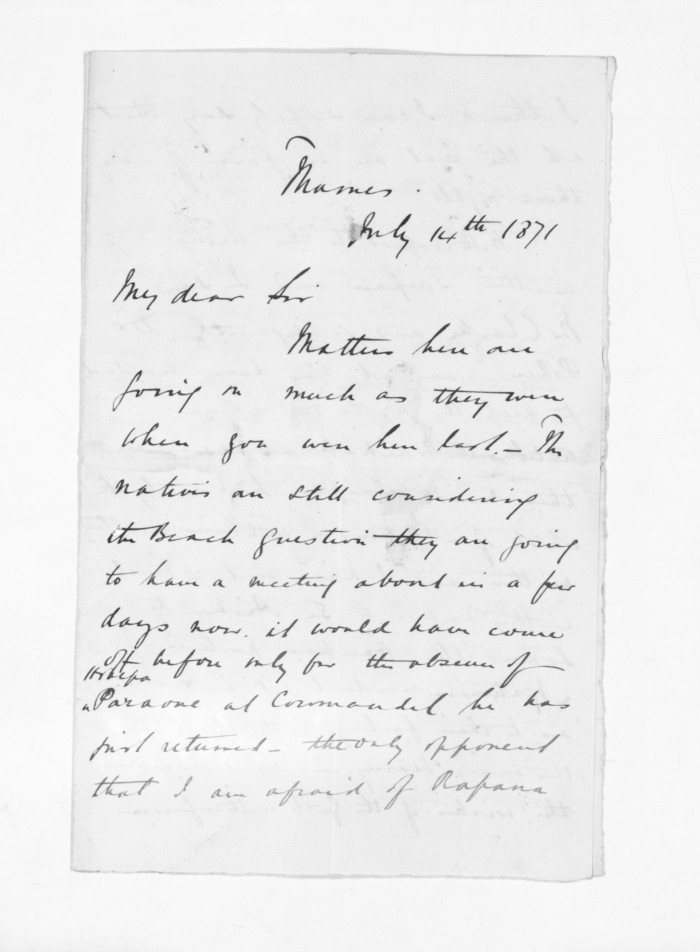 Thames.
July 14th 1871
My dear Sir
Matters here are
going on much as they were
when you were here last. - The
natives are still considering
the Beach question they are going
to have a meeting about in a few
days now. it would have come
off before only for the absence of
Hohepa
Paraone at Coromandel he has
just returned - the only opponent
that I am afraid of Rapana